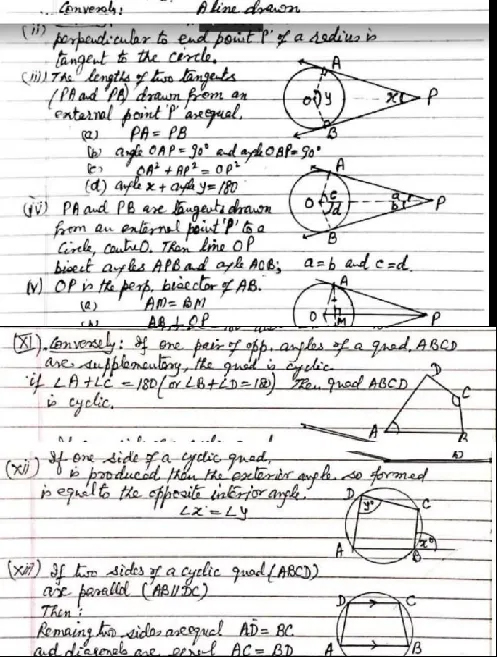 Conversely: A line drawn
(ii) perpendicular to end point 'P' of a radius is
tangent to the circle.
(iii) The lengths of two tangents
(PA and PB) drawn from an
external point 'P' are equal.
(a) PA = PB
(b) angle OAP = 90° and angle OBP = 90°
(c) OA² + AP² = OP²
(d) angle x + angle y = 180
A
O y x P
B
(iv) PA and PB are tangents drawn
from an external point 'P' to a
Circle, centre O. Then line OP
bisect angles APB and angle AOB; a=b and c=d.
A
O c d a b P
B
(v) OP is the perp. bisector of AB.
(a) AM = BM
AB ⊥ OP
A
O M P
(XI). Conversely: If one pair of opp. angles of a quad. ABCD
are supplementary, the quad is cyclic.
if ∠A + ∠C = 180 (or ∠B + ∠D = 180) Then quad ABCD
is cyclic.
D
C
A B
(xii) If one side of a cyclic quad,
is produced then the exterior angle, so formed
is equal to the opposite interior angle.
∠x = ∠y
D y° C
A B x°
(xiii) If two sides of a cyclic quad (ABCD)
are parallel (AB∥DC)
Then:
Remaing two sides are equal AD = BC
and diagonals are equal AC = BD
D C
A B